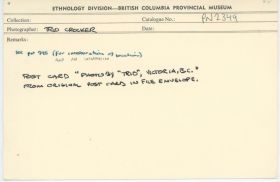 ETHNOLOGY DIVISION—BRITISH COLUMBIA PROVINCIAL MUSEUM
Collection: Catalogue No.: PN2349
Photographer: TRIO CROCKER Date:
Remarks:
see pn
POST CARD "PHOTO BY "TRIO", VICTORIA, B.C."
FROM ORIGINAL POST CARD IN FILE ENVELOPE.